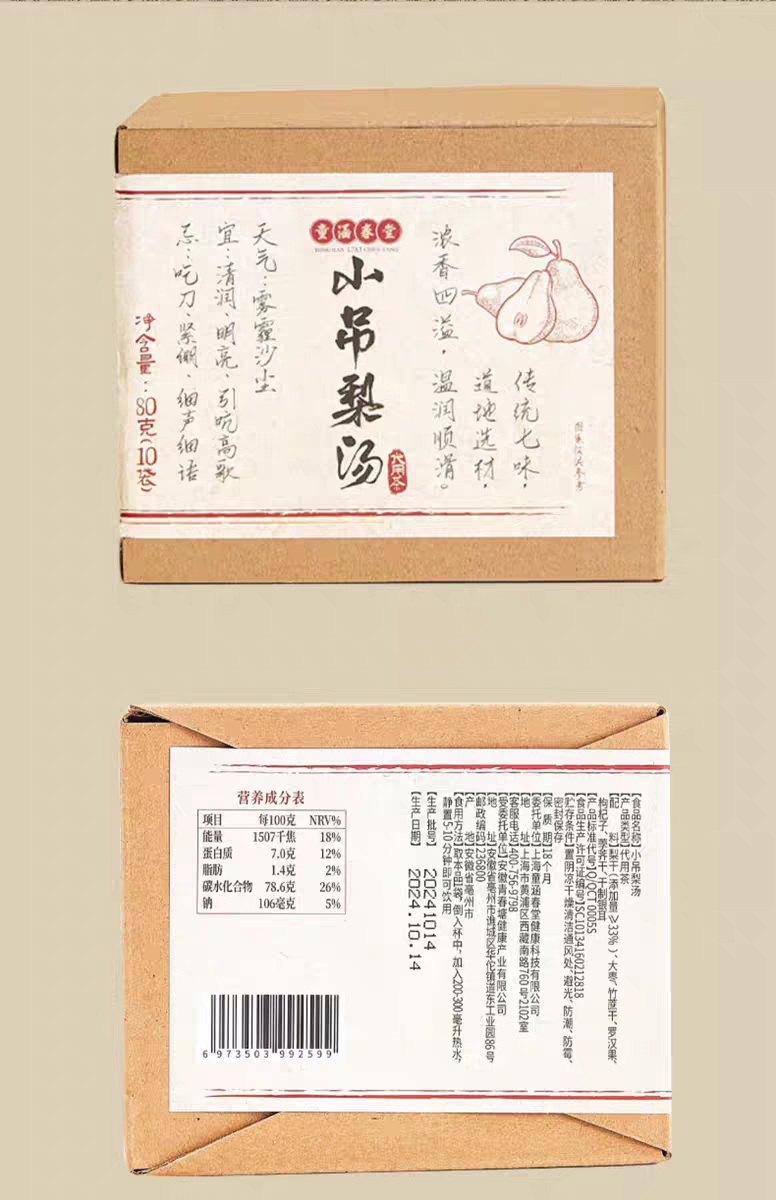 童涵春堂
TONG HAN 1783 CHUN TANG
小吊梨汤
代用茶
浓香四溢，温润顺滑。
道地选材，
传统七味，
天气：雾霾沙尘
宜：清润、明亮、引吭高歌
忌：吃刀、紧绷、细声细语
净含量：80克(10袋)
图案仅供参考
营养成分表
项目 每100克 NRV%
能量 1507千焦 18%
蛋白质 7.0克 12%
脂肪 1.4克 2%
碳水化合物 78.6克 26%
钠 106毫克 5%
6 973503 992599
【食品名称】小吊梨汤
【产品类型】代用茶
【配 料】梨干（添加量≥33%）、大枣、竹蔗干、罗汉果、
枸杞子、荸荠干、干制银耳
【产品标准代号】Q/QCT 0005S
【食品生产许可证编号】SC10134160212818
【贮存条件】置阴凉干燥清洁通风处、避光、防潮、防霉、
密封保存
【保 质 期】18个月
【委托单位】上海童涵春堂健康科技有限公司
【地 址】上海市黄浦区西藏南路760号2102室
【客服电话】400-756-9798
【受委托单位】安徽青春塘健康产业有限公司
【地 址】安徽省亳州市谯城区华佗镇道东工业园86号
【邮政编码】236800
【产 地】安徽省亳州市
【食用方法】取本品1袋，倒入杯中，加入200-300毫升热水，
静置5-10分钟即可饮用
【生产批号】 20241014
【生产日期】 2024.10.14